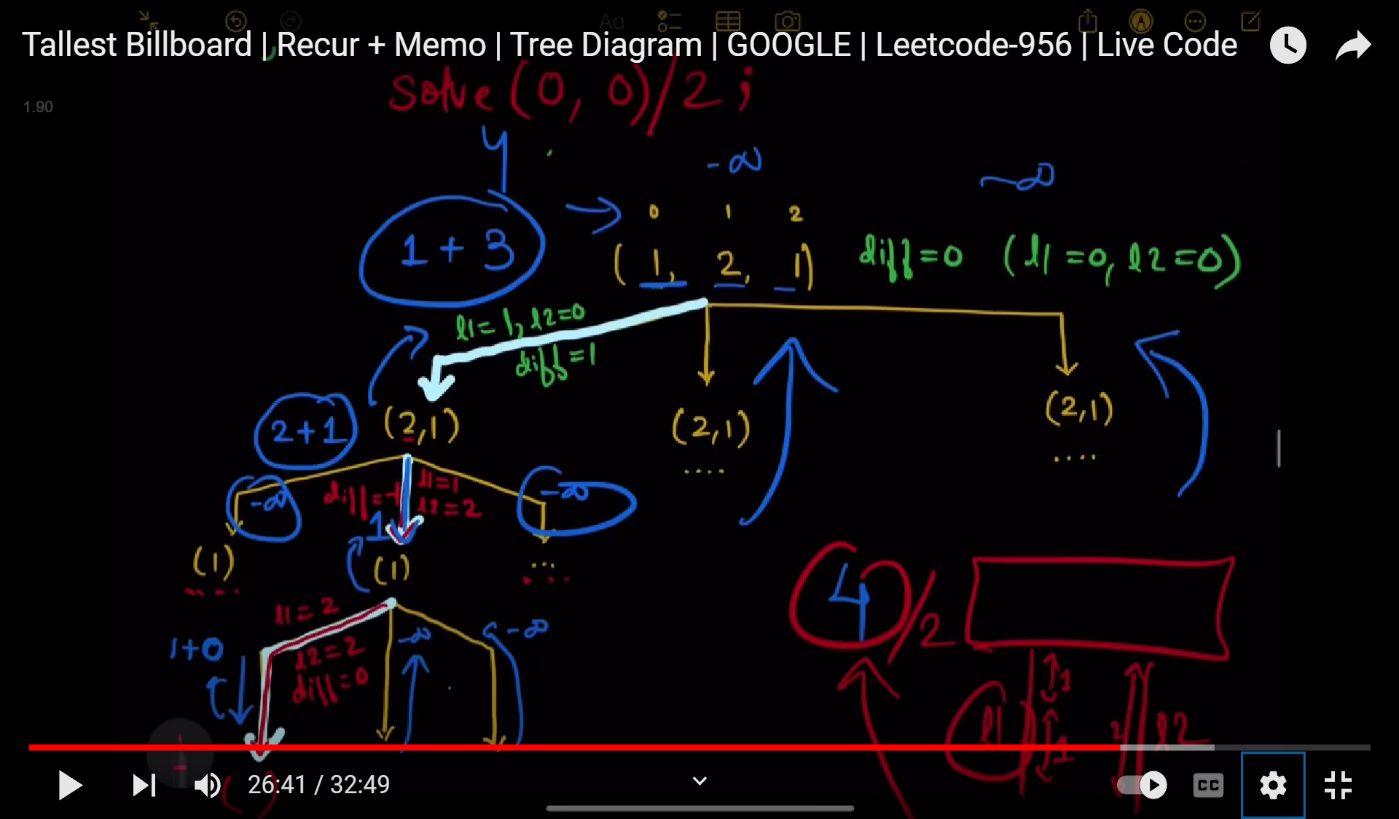 Aa
Tallest Billboard | Recur + Memo | Tree Diagram | GOOGLE | Leetcode-956 | Live Code
1.90
solve (0, 0)/2 ;
4
-∞
-∞
0 1 2
1 + 3
(1, 2, 1) diff=0 (l1=0, l2=0)
l1=1, l2=0
diff=1
2+1 (2,1) (2,1) (2,1)
.... ....
-∞ diff=-1 l1=1 -∞
l2=2
1
(1) (1) ...
4/2
l1=2
1+0 l2=2 -∞ -∞
diff=0
1
l1 1 2 l2
26:41 / 32:49
CC